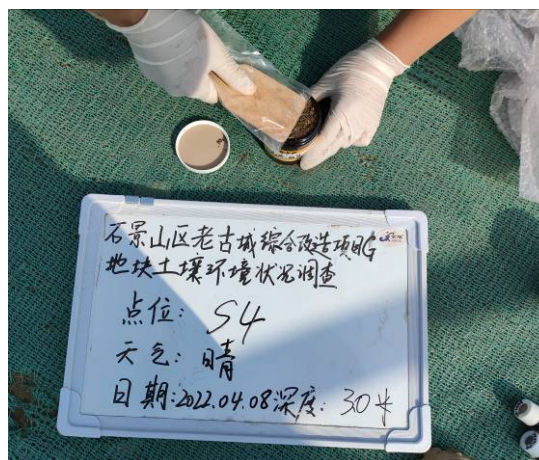 石景山区老古城综合改造项目G
地块土壤环境状况调查
点位: S4
天气: 晴
日期:2022.04.08深度: 3.0米